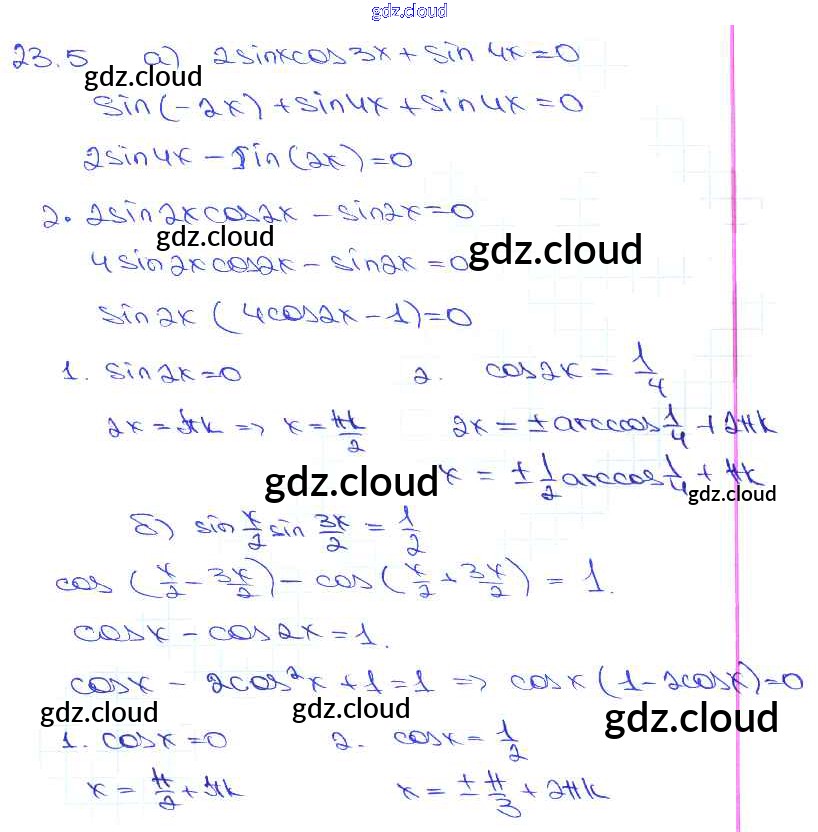 gdz.cloud
23.5 а) 2sinxcos3x + sin 4x = 0
gdz.cloud
sin(-2x) + sin4x + sin4x = 0
2sin4x - sin(2x) = 0
2·2sin2xcos2x - sin2x = 0
gdz.cloud gdz.cloud
4sin2xcos2x - sin2x = 0
sin2x (4cos2x - 1) = 0
1. sin2x = 0 2. cos2x = 1/4
2x = πk => x = πk/2 2x = ± arccos 1/4 + 2πk
gdz.cloud x = ± 1/2 arccos 1/4 + πk
gdz.cloud
б) sin x/2 sin 3x/2 = 1/2
cos (x/2 - 3x/2) - cos (x/2 + 3x/2) = 1.
cosx - cos2x = 1.
cosx - 2cos²x + 1 = 1 => cosx (1 - 2cosx) = 0
gdz.cloud gdz.cloud gdz.cloud
1. cosx = 0 2. cosx = 1/2
x = π/2 + πk x = ± π/3 + 2πk